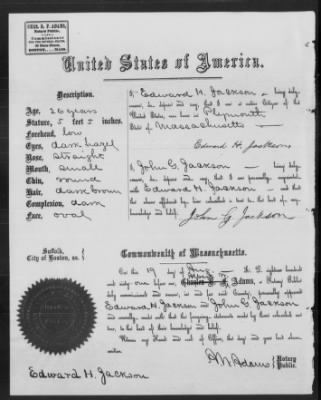 CHAS. H. F. ADAMS,
Notary Public,
Commissioner
United States of America.
I, Edward H. Jackson being duly
sworn, do depose and say, that I am a native Citizen of the
United States, was born in Plymouth
State of Massachusetts
Edward H. Jackson
I, John G. Jackson being duly
sworn, do depose and say, that I am personally acquainted
with Edward H. Jackson and that
the above affidavit by him subscribed is true to the best of my
knowledge and belief.
John G. Jackson
Description.
Age, 26 years
Stature, 5 feet 5 inches.
Forehead, low
Eyes, dark hazel
Nose, straight
Mouth, small
Chin, round
Hair, dark brown
Complexion, dark
Face, oval
Suffolk,
City of Boston, ss.
Commonwealth of Massachusetts.
On this 19 day of A. D. eighteen hundred
and sixty one before me, Adams, a Notary Public
duly commissioned and sworn, in and for said County, personally appeared
Edward H. Jackson and John G. Jackson
and severally made oath that the foregoing statements made by them subscribed are
true, to the best of their knowledge and belief.
Witness my Hand and Seal of Office, the day and year last above
written.
Adams Notary
Public.
Edward H. Jackson